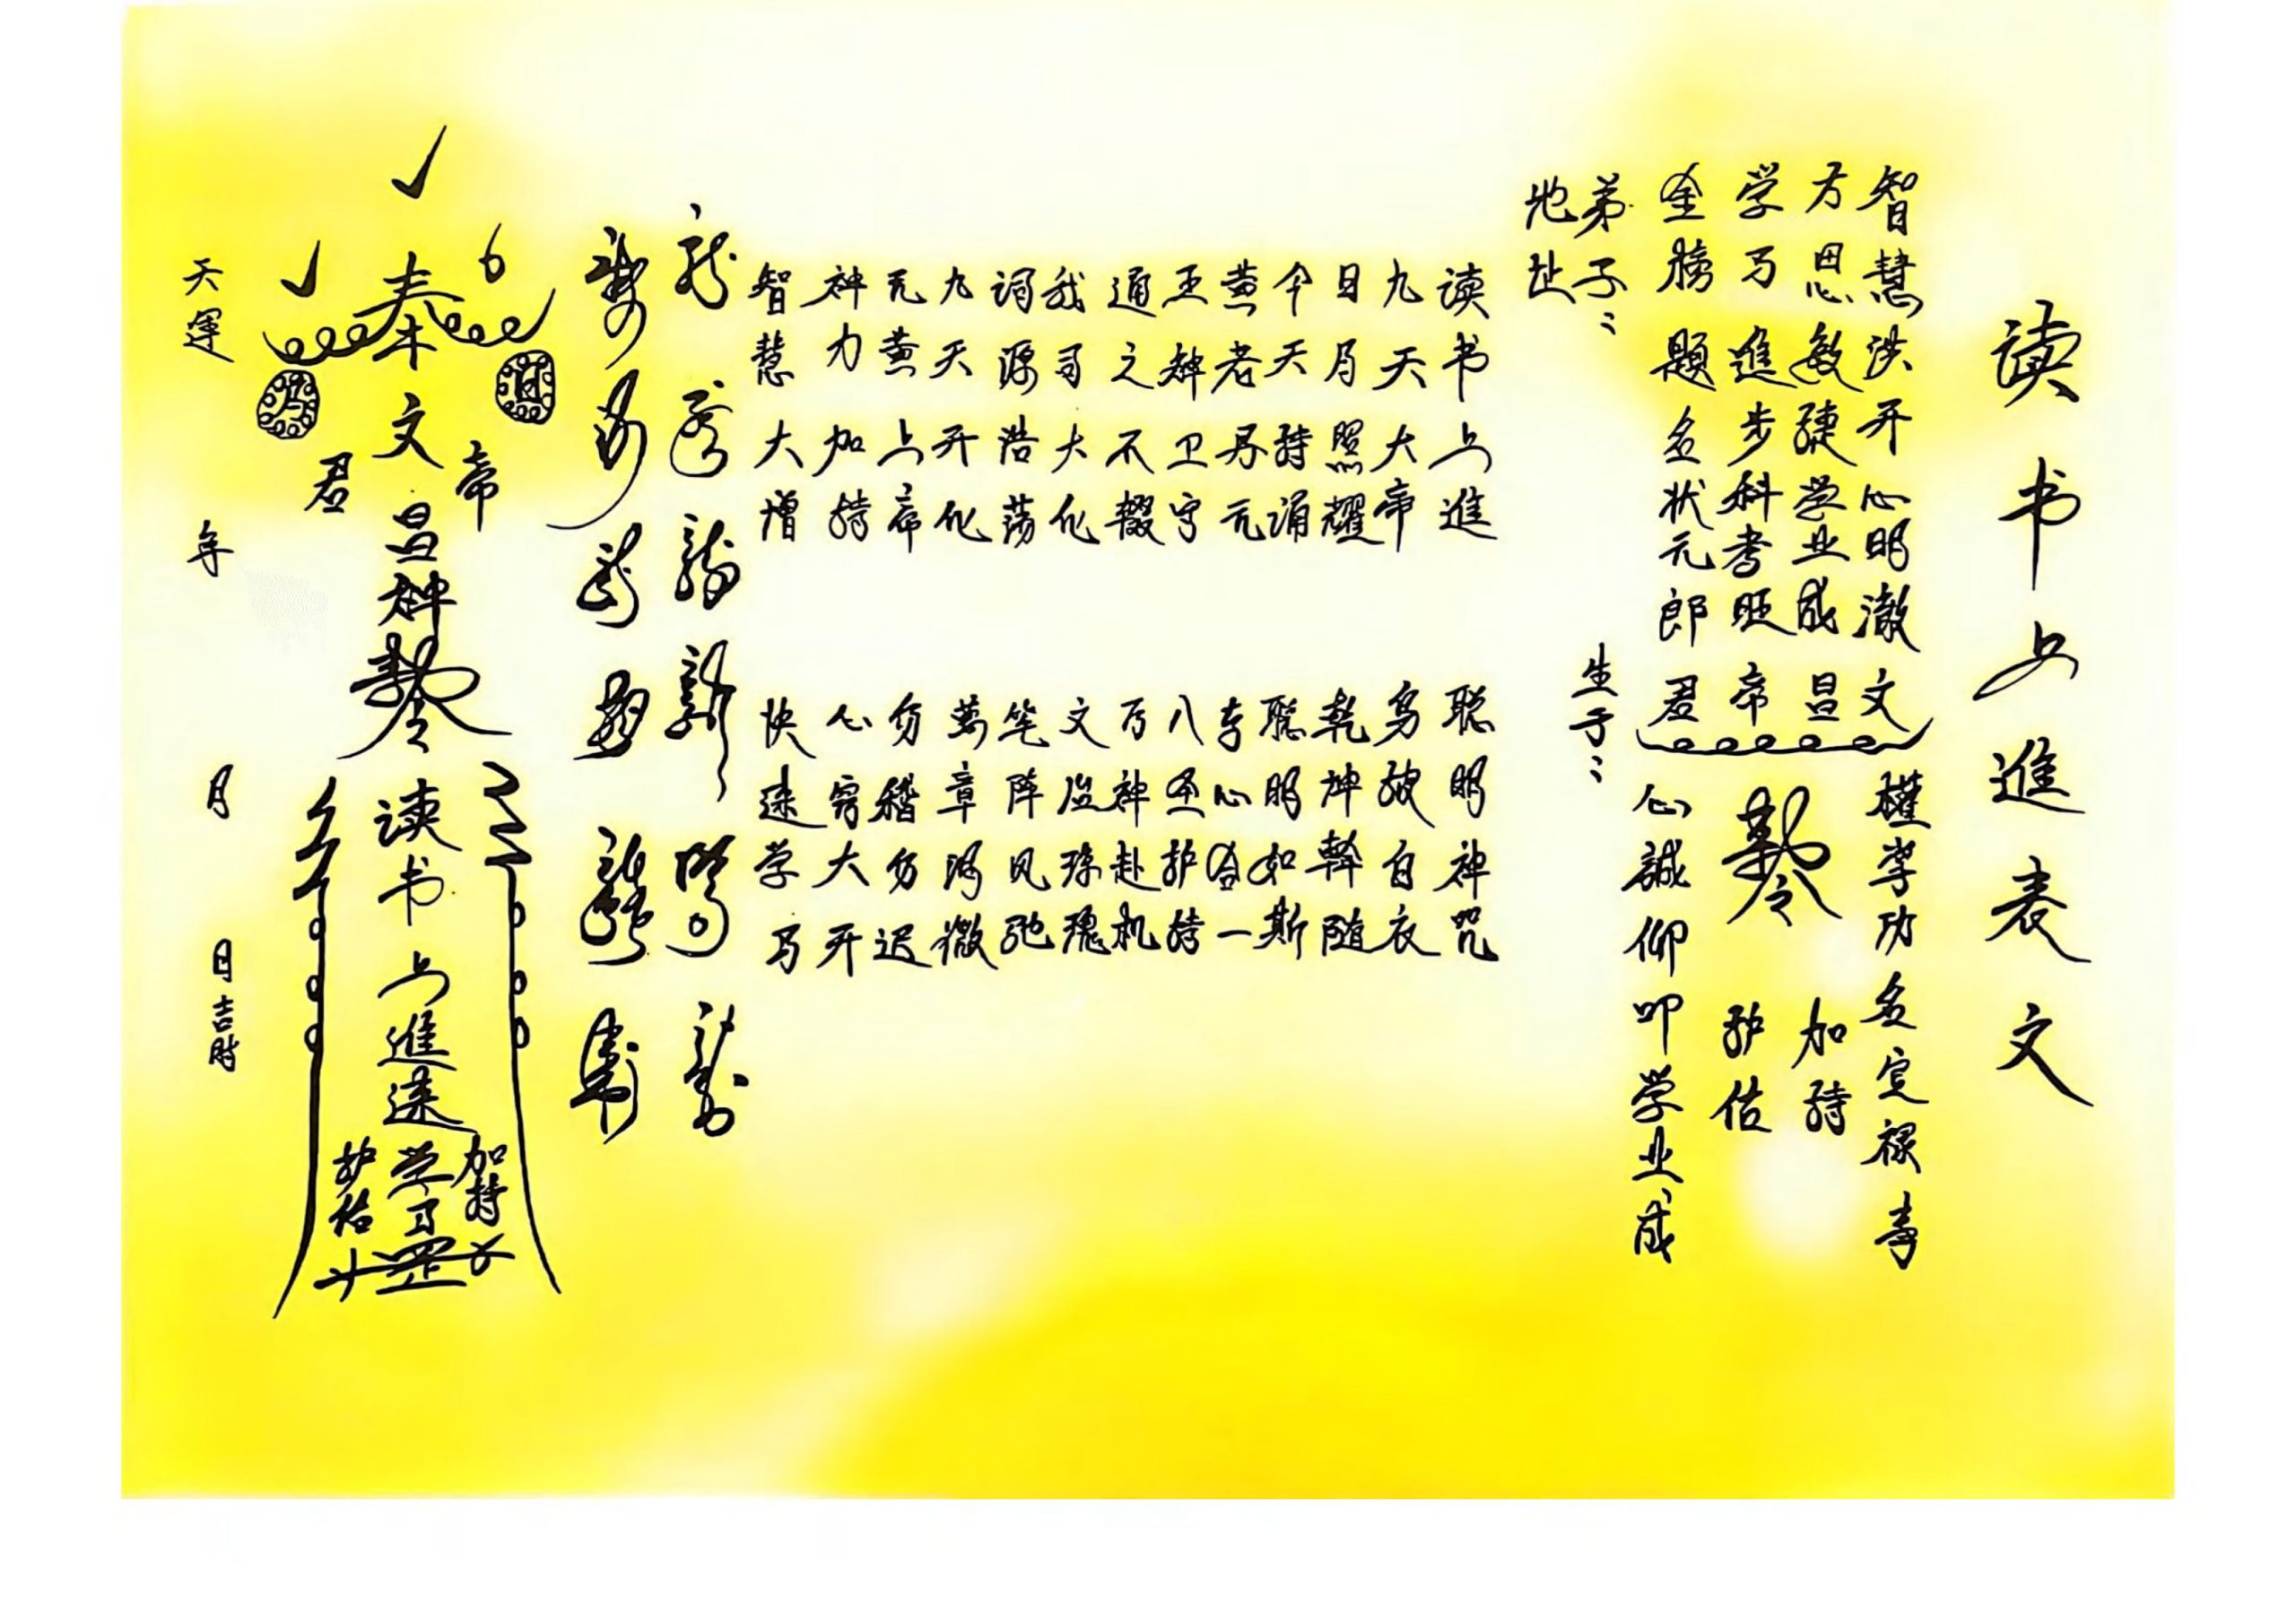 读书上進表文
智慧洪开心明澈
方思敏捷学业成
学习進步科考旺
金榜题名状元郎
文昌帝君
權掌功名定禄事
敕令
加持
护佑
心誠仰叩学业成
弟子：
生于：
地址
读书上進
九天大帝
日月照耀
今天持诵
黄老丹元
玉神卫守
通之不辍
我司大化
词源浩荡
九天开化
元黄上帝
神力加持
智慧大增
聪明神咒
身披白衣
乾坤斡随
聪明如斯
专心合一
八圣护持
百神赴机
文思珠瑰
笔阵风驰
万章洞微
勿稽勿迟
心窍大开
快速学习
奉本
文昌神
帝
君
敕令
读书上進速
学习
加持
护佑
罡
天運
年
月
日吉时